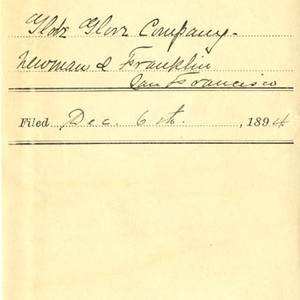 Globe Glove Company.
Newman & Franklin
San Francisco
Filed Dec. 6th. , 1894